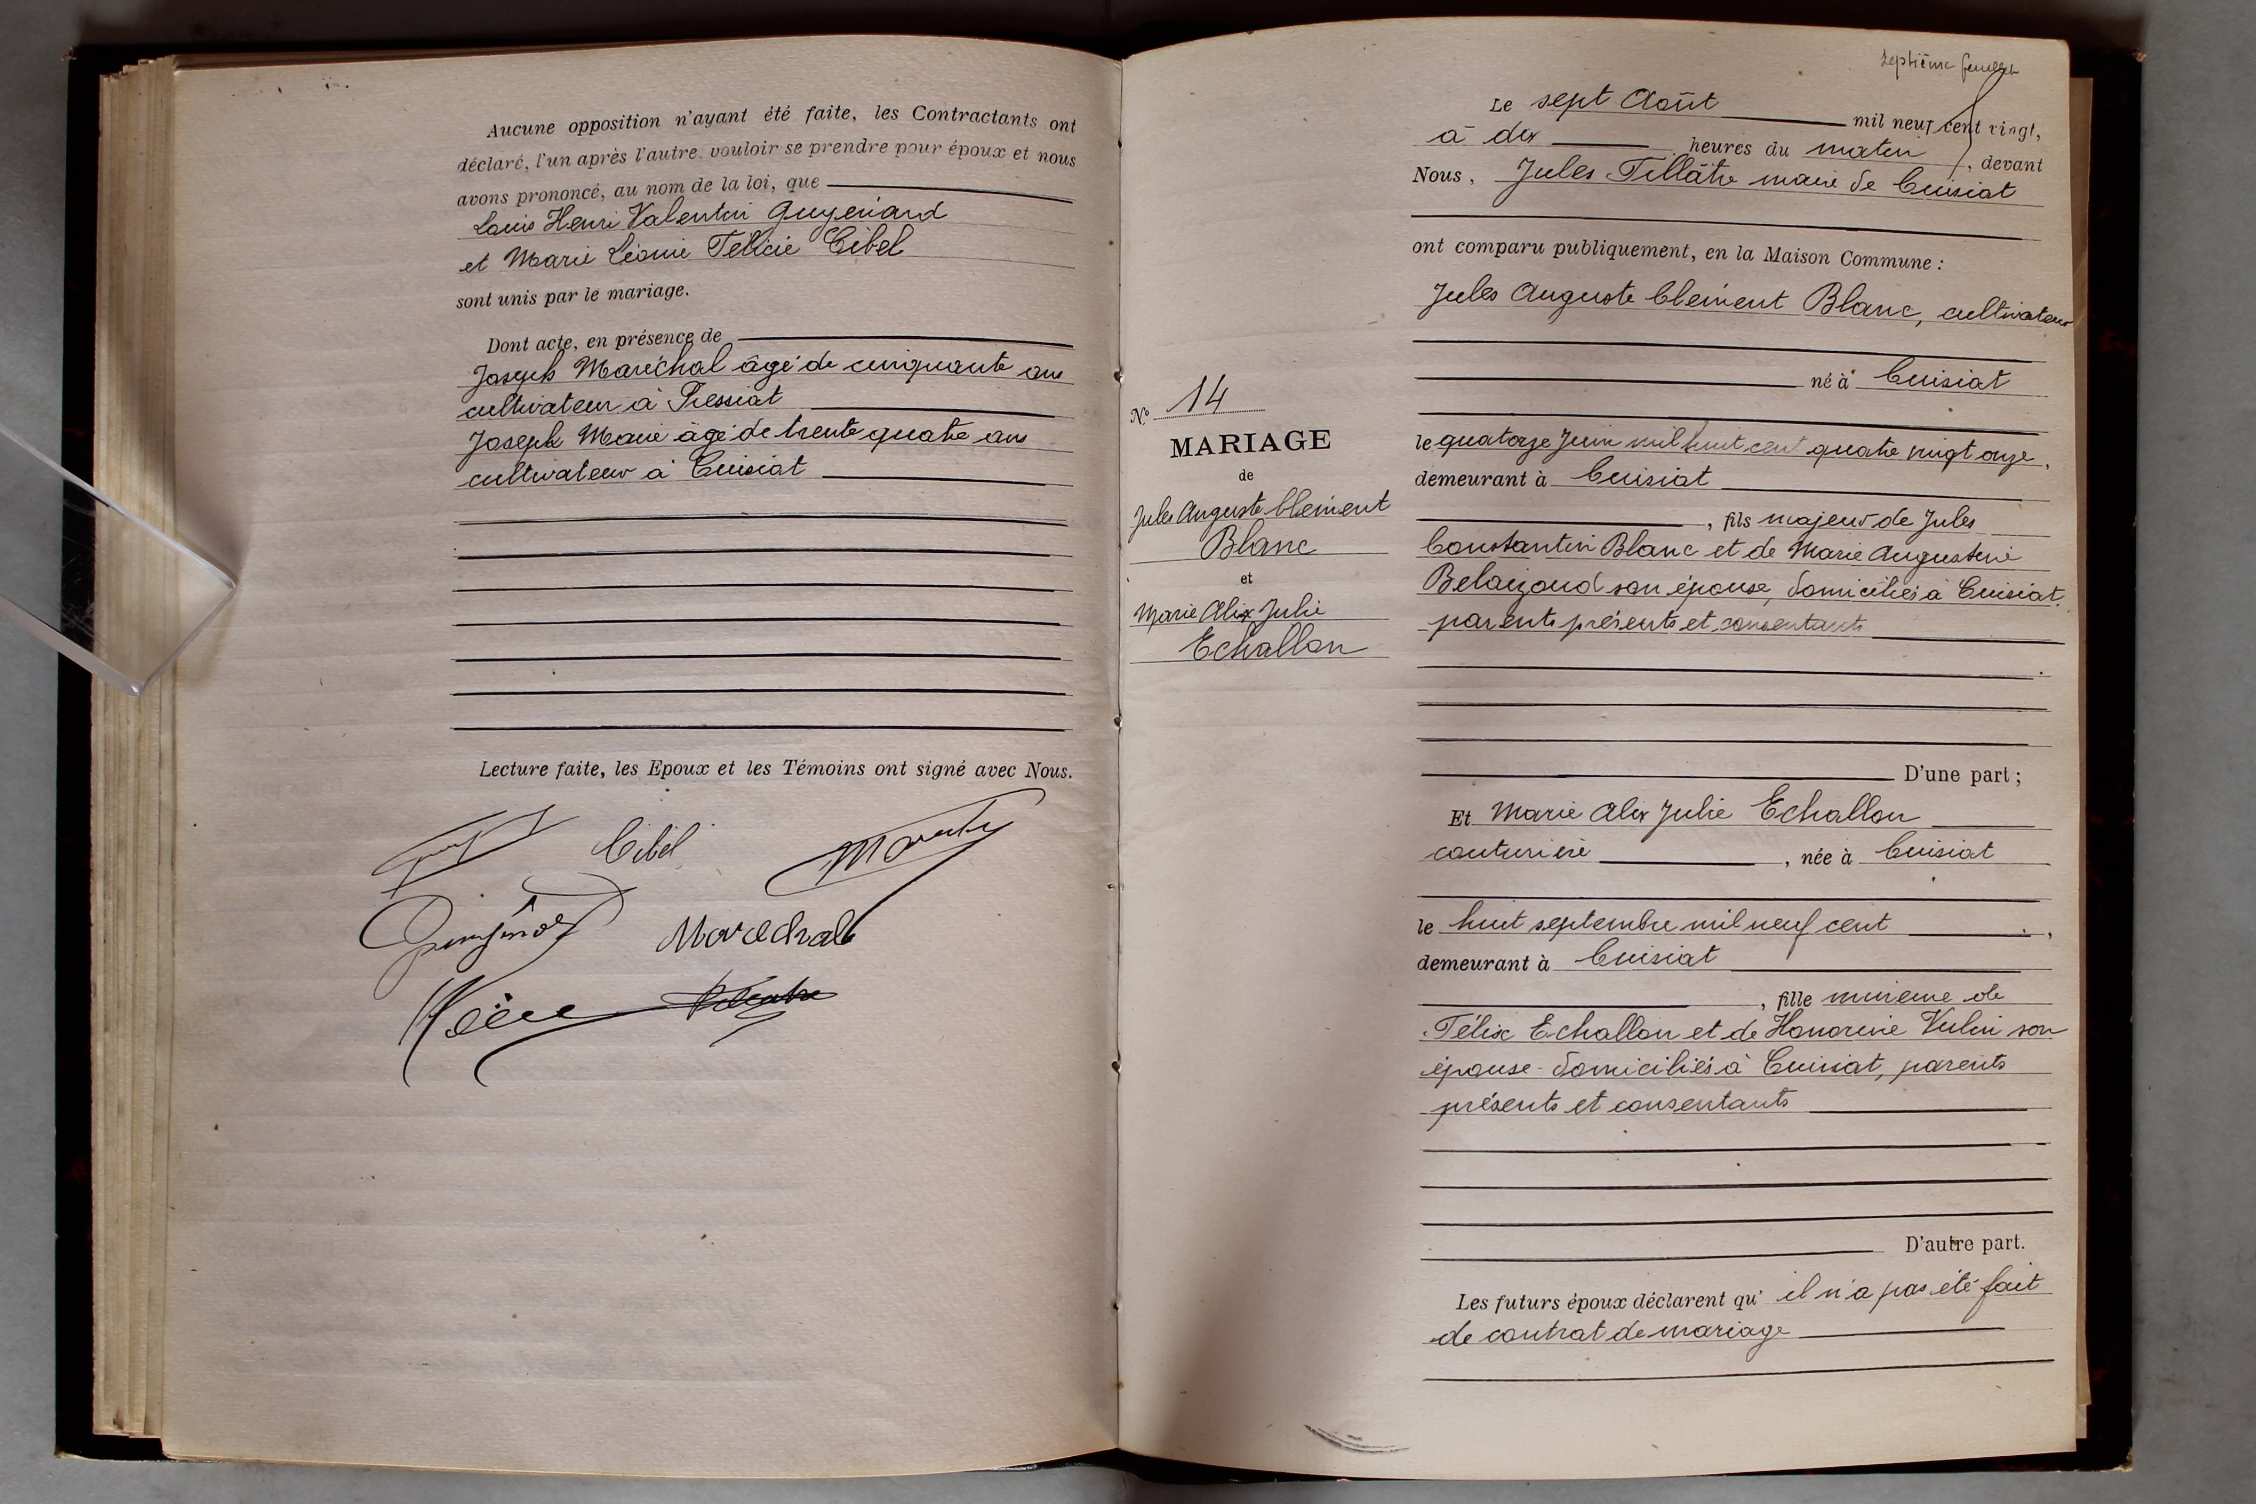 Aucune opposition n'ayant été faite, les Contractants ont
déclaré, l'un après l'autre, vouloir se prendre pour époux et nous
avons prononcé, au nom de la loi, que
Louis Henri Valentin Guyenard
et Marie Léonie Félicie Cibel
sont unis par le mariage.
Dont acte, en présence de
Joseph Maréchal âgé de cinquante ans
cultivateur à Pressiat
Joseph Marie âgé de trente quatre ans
cultivateur à Cuisiat
Lecture faite, les Epoux et les Témoins ont signé avec Nous.
Cibel
Marechal
septième feuillet
Le sept Août mil neuf cent vingt,
à dix heures du matin, devant
Nous, Jules Tillâtre maire de Cuisiat
ont comparu publiquement, en la Maison Commune :
Jules Auguste Clément Blanc, cultivateur
né à Cuisiat
le quatorze Juin mil huit cent quatre vingt onze,
demeurant à Cuisiat
, fils majeur de Jules
Constantin Blanc et de Marie Augustine
son épouse, domiciliés à Cuisiat,
parents présents et consentants
D'une part ;
Et Marie Alix Julie Echallon
couturière, née à Cuisiat
le huit septembre mil neuf cent,
demeurant à Cuisiat
, fille mineure de
Félix Echallon et de Honorine Vulin son
épouse domiciliés à Cuisiat, parents
présents et consentants
D'autre part.
Les futurs époux déclarent qu'il n'a pas été fait
de contrat de mariage
N° 14
MARIAGE
de
Jules Auguste Clément
Blanc
et
Marie Alix Julie
Echallon